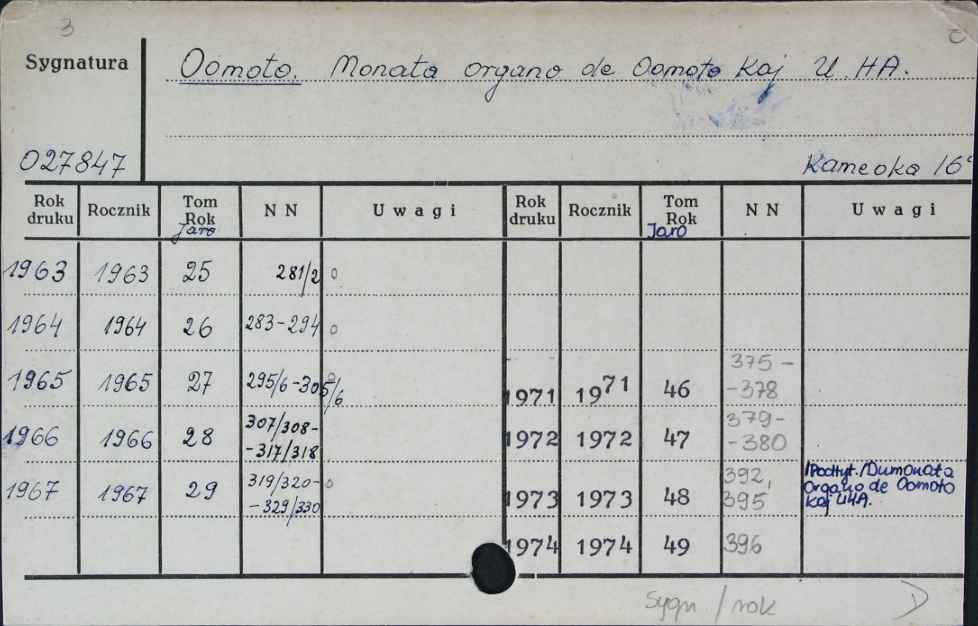 3
Sygnatura
Oomoto. Monata organo de Oomoto kaj U.HA.
027847
Kameoka 16°
Rok druku Rocznik Tom Rok Jaro NN Uwagi Rok druku Rocznik Tom Rok Jaro NN Uwagi
1963 1963 25 281/2 o
1964 1964 26 283-294 o
1965 1965 27 295/6-305/6 o 1971 1971 46 375-
-378
1966 1966 28 307/308-
-317/318 1972 1972 47 379-
-380
1967 1967 29 319/320- o
-329/330 1973 1973 48 392,
395 /Podtyt./Dumonata
Organo de Oomoto
kaj UHA.
1974 1974 49 396
Sygn / rok